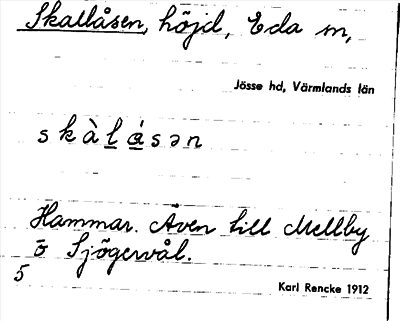 Skallåsen, höjd, Eda sn,
Jösse hd, Värmlands län
skàl̲á̲sən
Hammar. Även till Mellby
o Sjögervål.
5
Karl Rencke 1912